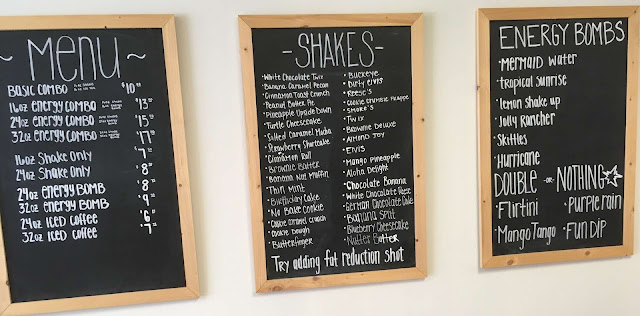 ~ MENU ~
BASIC COMBO $10
16oz ENERGY COMBO $13
24oz ENERGY COMBO $15
32oz ENERGY COMBO $17
16oz Shake Only $7
24oz Shake Only $8
24oz ENERGY BOMB $8
32oz ENERGY BOMB $9
24oz ICED COFFEE $6
32oz ICED COFFEE $7
-SHAKES-
• White Chocolate Twix
• Banana Caramel Pecan
• Cinnamon Toast Crunch
• Peanut Butter Pie
• Pineapple Upside Down
• Turtle Cheesecake
• Salted Caramel Mocha
• Strawberry Shortcake
• Cinnamon Roll
• Brownie Batter
• Banana Nut Muffin
• Thin Mint
• Birthday Cake
• No Bake Cookie
• Cookie Dough
• Butterfinger
• Buckeye
• Dirty Elvis
• Reese's
• Twix
• Brownie Deluxe
• Almond Joy
• Elvis
• Mango Pineapple
• Aloha Delight
• Chocolate Banana
• White Chocolate Reese
• German Chocolate Cake
• Banana Split
• Blueberry Cheesecake
• Nutter Butter
Try adding fat reduction shot
ENERGY BOMBS
• Mermaid Water
• Tropical Sunrise
• lemon shake up
• Jolly Rancher
• Skittles
• Hurricane
DOUBLE -or- NOTHING
• Flirtini
• Purple rain
• Mango Tango
• FUN DIP